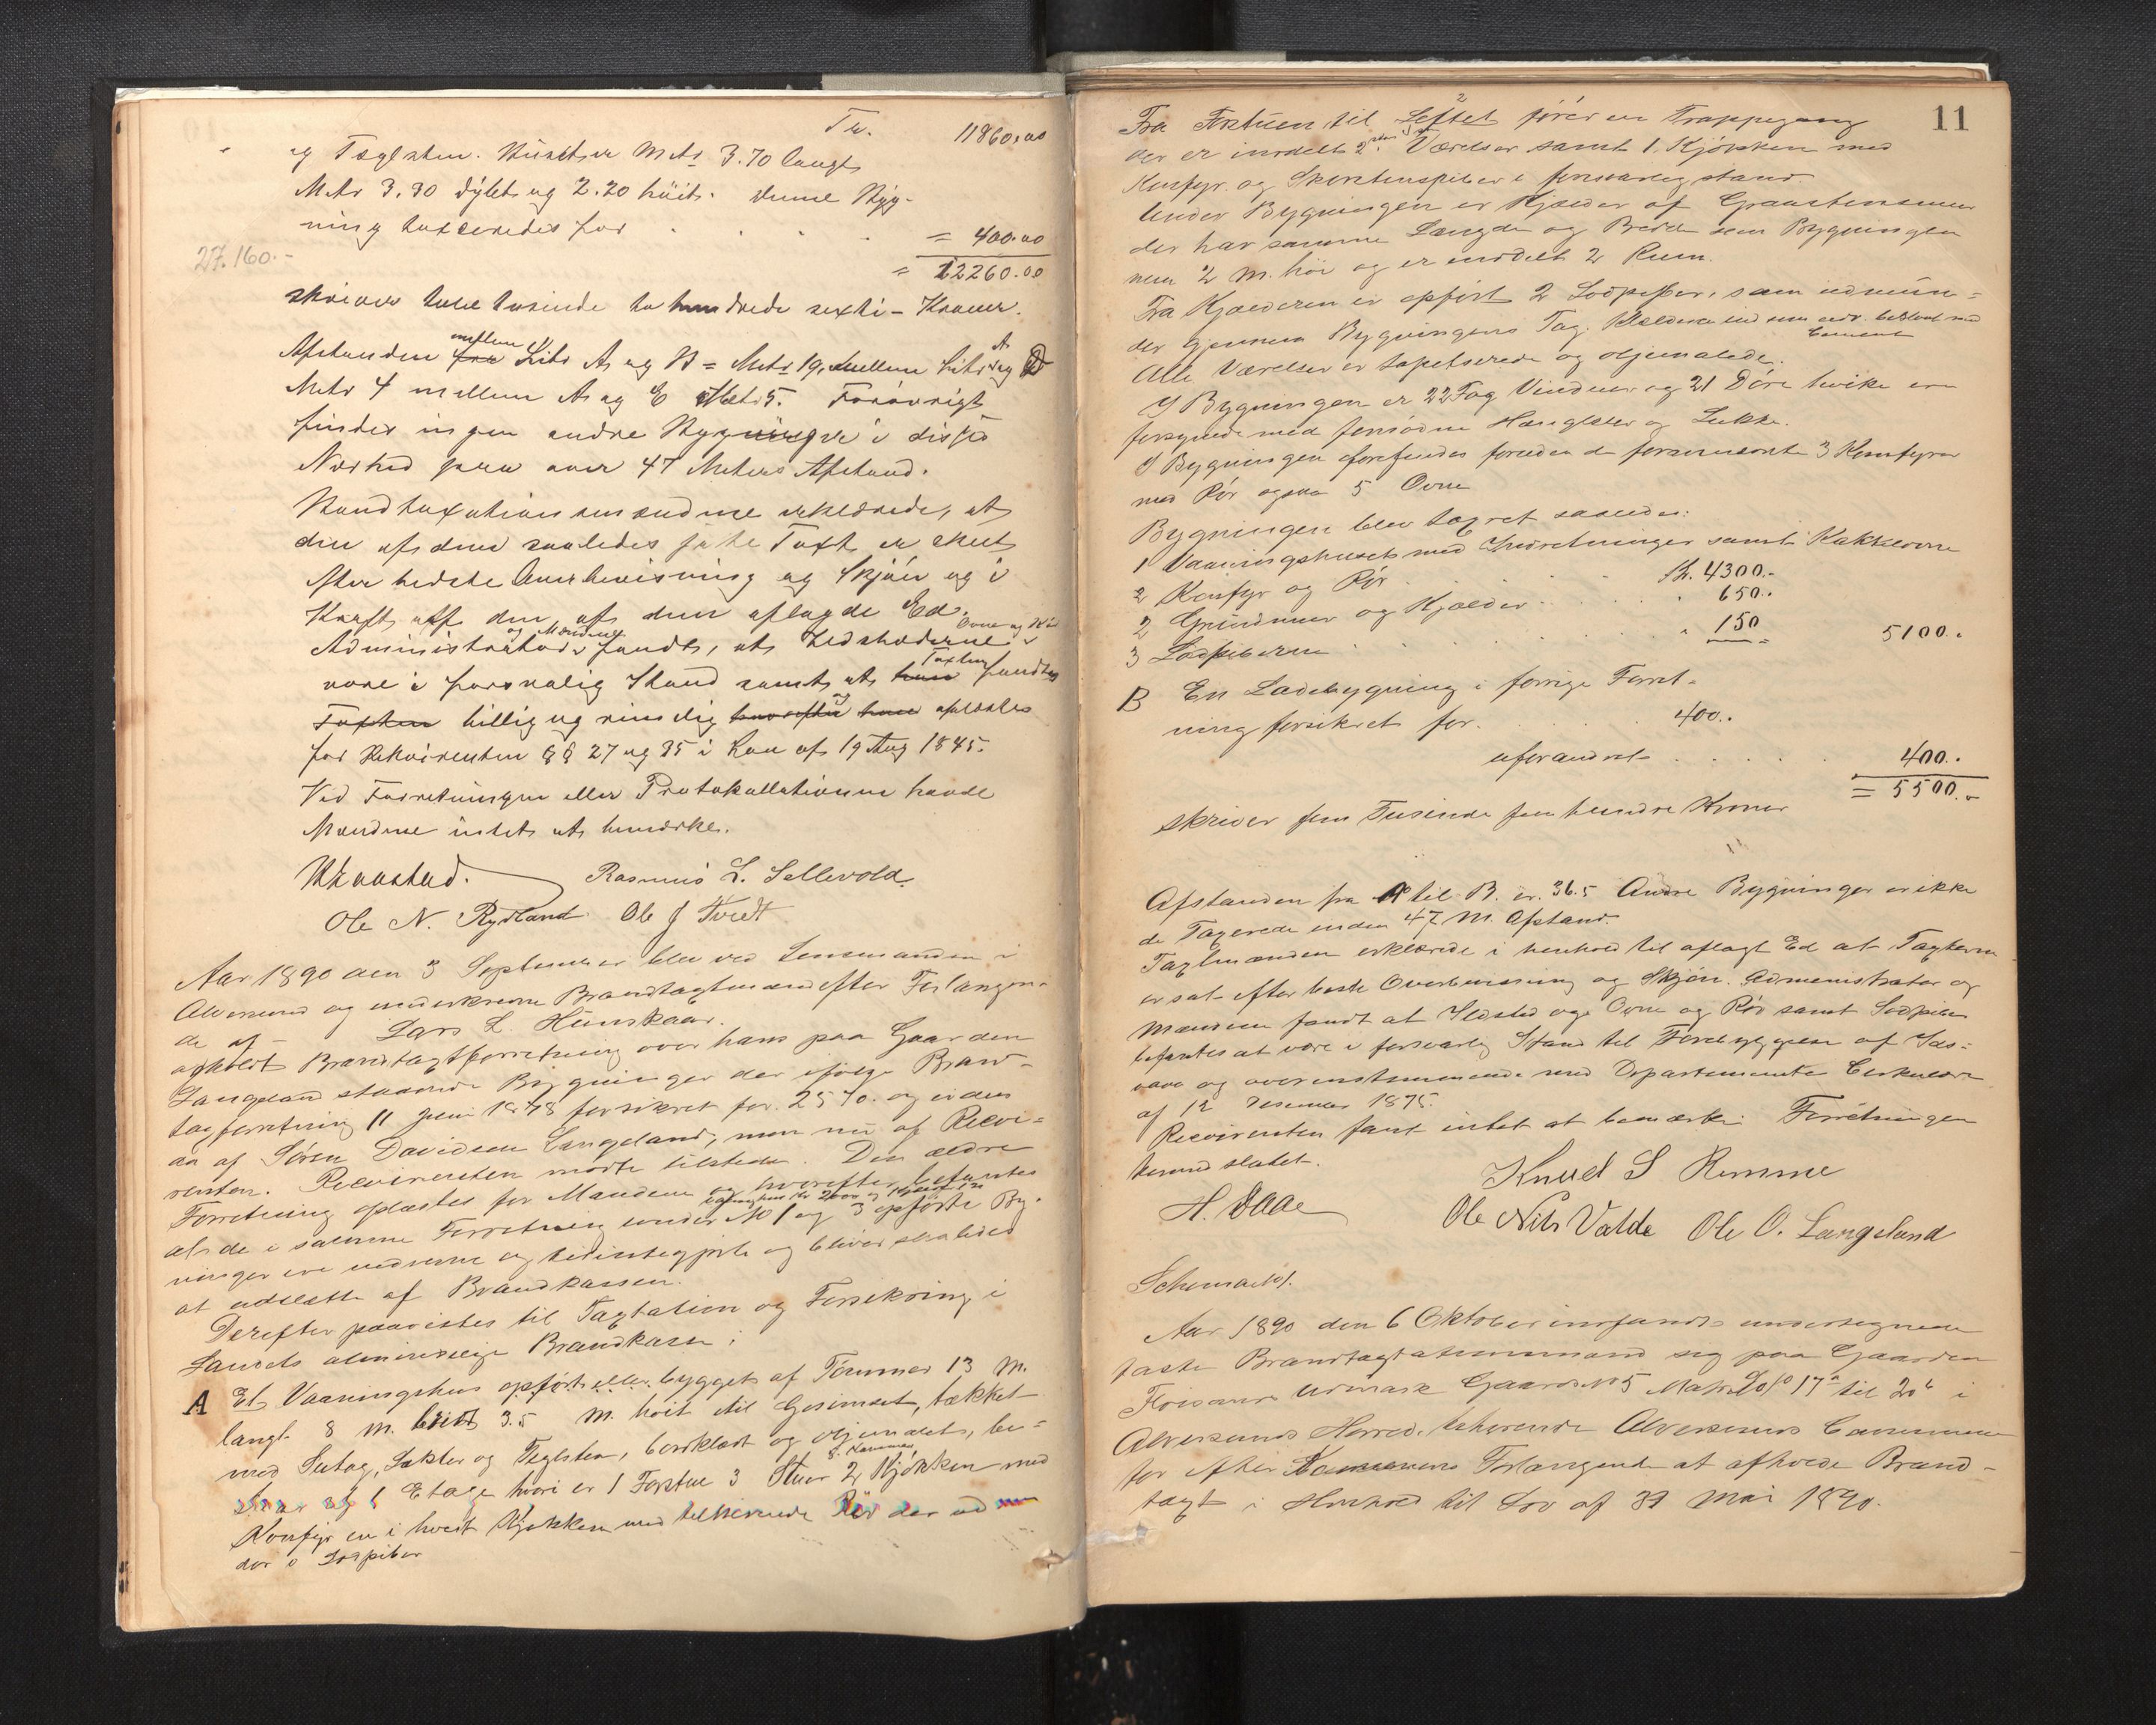 Tr. 11860,00
og Taglsten. Huset er Metr 3.70 langt
Metr 3.30 dybt og 2.20 höit. Denne Byg-
ning taxeredes for . . . . = 400.00
27.160.-
= 12260.00
skriver tolv tusinde to hundrede sexti - Kroner.
Afstanden mellem Litr A og B = Metr 19, mellem Litr A og D
Metr 4 mellem A og E Metr 5. Forövrigt
findes ingen andre Bygninger i disses
Nærhed paa over 47 Meters Afstand.
Brandtaxationsmændene erklærede, at
den af dem saaledes satte Taxt er skeet
efter bedste Overbevisning og Skjön og i
Kraft af den af dem aflagde Ed.
Administrator og Mændene fandt, at Ildstederne Ovne og Rör
vare i forsvarlig Stand samt at Taxten fandtes
billig og rimelig og oplæstes
for Rekvirenten §§ 27 og 35 i Lov af 19 Aug 1845.
Ved Forretningen eller Protokollationen havde
Mændene intet at bemærke.
Rasmus L. Sellevold
Ole N. Rydland Ole J Tvedt
Aar 1890 den 3 September blev ved Lensmanden i
Alversund og undskrevne Brandtagtmænd efter Forlangen-
de af - Lars L. Hunskaar.
afholdt Brandtagtforretning over hans paa Gaarden
Langeland staaende Bygninger der ifölge Brand-
tagforretning 11 Juni 1878 forsikret for 2570. og eiedes
da af Sören Davidsen Langeland, men nu af Recvi-
renten. Recvirenten mödte tilstede. Den ældre
Forretning oplæstes for Mændene og hvorefter befantes
at de i samme Forretning under No 1 og 3 opförte Byg-
ninger ere nedrevne og tilintetgjorte og bliver saaledes
at udslette af Brandkassen.
Derefter paavistes til Tagtation og Forsekring i
Landets almindelige Brandkasse:
A Et Vaaningshus opfört eller bygget af Tömmer 13 M.
langt 8 M. bredt 3.5 M. höit til Gesimset, tækket
med Sutag, Lekter og Teglsten, bordklædt og oljemalet, be-
staar af 1 Etage hvori er 1 Forstue 3 Stuer 2 Kjökken med
Konfyr en i hvert Kjökken med tilhörende Rör der ud mun
der i Lodpiber
11
Fra Forstuen til Loftet förer en Trappegang
der er inddelt 2 Værelser samt 1 Kjökken med
Konfyr og Skorstenspiber i forsvarlig stand.
Under Bygningen er Kjælder af Graastensmur
der har samme Længde og Brede som Bygningen
men 2 M. höi og er inddelt 2 Rum.
Fra Kjælderen er opfört 2 Lodpiber, som udmun-
der gjennem Bygningens Tag.
Cement
Alle Værelser er tapetserede og oljemalede.
I Bygningen er 22 Fag Vinduer og 21 Döre hvilke ere
forsynede med fornödne Hængsler og Lukke.
I Bygningen forefindes foruden de forannævnte 3 Komfyrer
med Rör ogsaa 5 Ovne
Bygningen blev taxeret saaledes:
1 Vaaningshuset med Indretninger samt Kakkelovne
2 Konfyr og Rör . . . . Kr. 4300.-
2 Grundmur og Kjælder . . . . 650..
3 Lodpiberne . . . . " 150 5100..
B En Ladebygning i forrige Forret-
ning forsikret for . . . . 400..
uforandret . . . . 400..
= 5500.-
skriver fem Tusinde fem hundre Kroner
Afstanden fra A til B. er. 36.5 Andre Bygninger er ikke
de Taxerede inden 47 M. Afstand.
Taxtmænden erklærede i henhold til aflagt Ed at Taxterne
er sat efter beste Overbevisning og Skjön. Administrator og
Mændene fandt at Ildsted og Ovne og Rör samt Lodpiber
befantes at være i forsvarlig Stand til Forebyggelse af Ilds-
vaade og overenstemmende med Departementets Cirkulære
af 12 December 1875.
Recvirenten fant intet at bemærke. Forretningen
dermed sluttet.
Knud S Remme
H. Daae
Ole Nils Valde Ole O. Langeland
Schema
Aar 1890 den 6 Oktober indfandt undertegnede
faste Brandtagtationsmænd sig paa Gaarden
Gaards No 5 17 til 20 i
Alversunds Herred, tilhørende Alversunds Commune
for efter Kommunens Forlangende at afholde Brand-
taxt i Henhold til Lov af 31 Mai 1890.